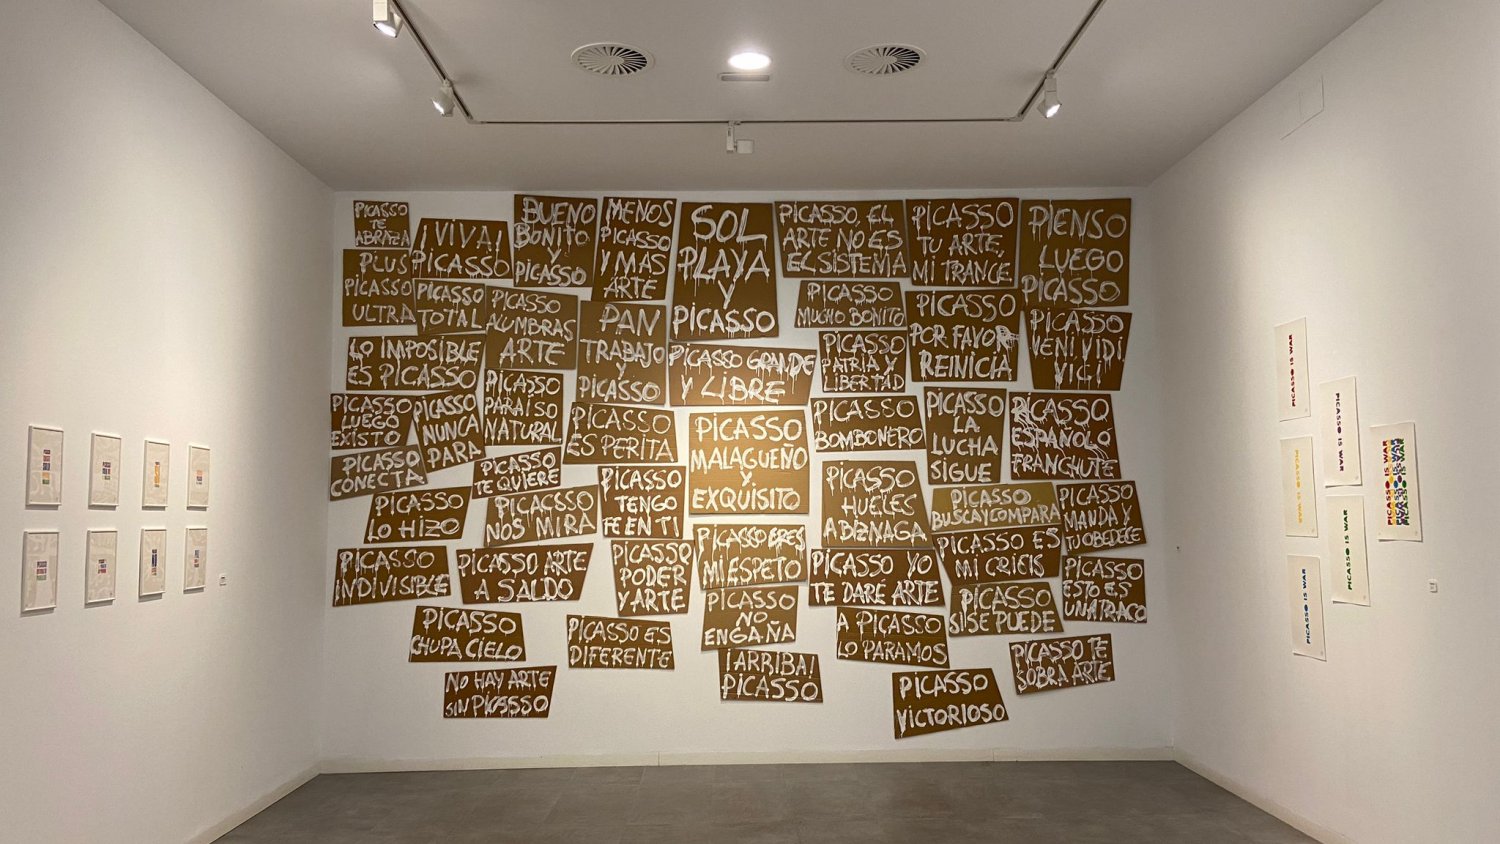 PICASSO
TE
ABRAZA
¡VIVA!
PICASSO
BUENO
BONITO
Y
PICASSO
MENOS
PICASSO
Y MAS
ARTE
SOL
PLAYA
Y
PICASSO
PICASSO, EL
ARTE NO ES
EL SISTEMA
PICASSO
TU ARTE,
MI TRANCE.
PIENSO
LUEGO
PICASSO
PLUS
PICASSO
ULTRA
PICASSO
TOTAL
PICASSO
ALUMBRAS
ARTE
PAN
TRABAJO
Y
PICASSO
PICASSO
MUCHO BONITO
PICASSO
POR FAVOR
REINICIA
PICASSO
VENI VIDI
VICI
LO IMPOSIBLE
ES PICASSO
PICASSO
PARAISO
NATURAL
PICASSO GRANDE
Y LIBRE
PICASSO
PATRIA Y
LIBERTAD
PICASSO
LUEGO
EXISTO
PICASSO
NUNCA
PARA
PICASSO
ES PERITA
PICASSO
MALAGUEÑO
Y
EXQUISITO
PICASSO
BOMBONERO
PICASSO
LA
LUCHA
SIGUE
PICASSO
ESPAÑOL O
FRANCHUTE
PICASSO
CONECTA
PICASSO
TE QUIERE
PICASSO
TENGO
FE EN TI
PICASSO
HUELES
A BIZNAGA
PICASSO
BUSCA Y COMPARA
PICASSO
MANDA Y
TU OBEDECE
PICASSO
LO HIZO
PICACSSO
NOS MIRA
PICASSO
INDIVISIBLE
PICASSO ARTE
A SALDO
PICASSO
PODER
Y ARTE
PICASSO ERES
MI ESPETO
PICASSO YO
TE DARÉ ARTE
PICASSO ES
MI CRISIS
PICASSO
ESTO ES
UN ATRACO
PICASSO
NO
ENGAÑA
PICASSO
SI SE PUEDE
PICASSO
CHUPA CIELO
PICASSO ES
DIFERENTE
A PICASSO
LO PARAMOS
PICASSO TE
SOBRA ARTE
NO HAY ARTE
SIN PICASSO
¡ARRIBA!
PICASSO
PICASSO
VICTORIOSO
PICASSO IS WAR
PICASSO IS WAR
PICASSO IS WAR
PICASSO IS WAR
PICASSO IS WAR
PICASSO IS WAR
PICASSO IS WAR
PICASSO IS WAR